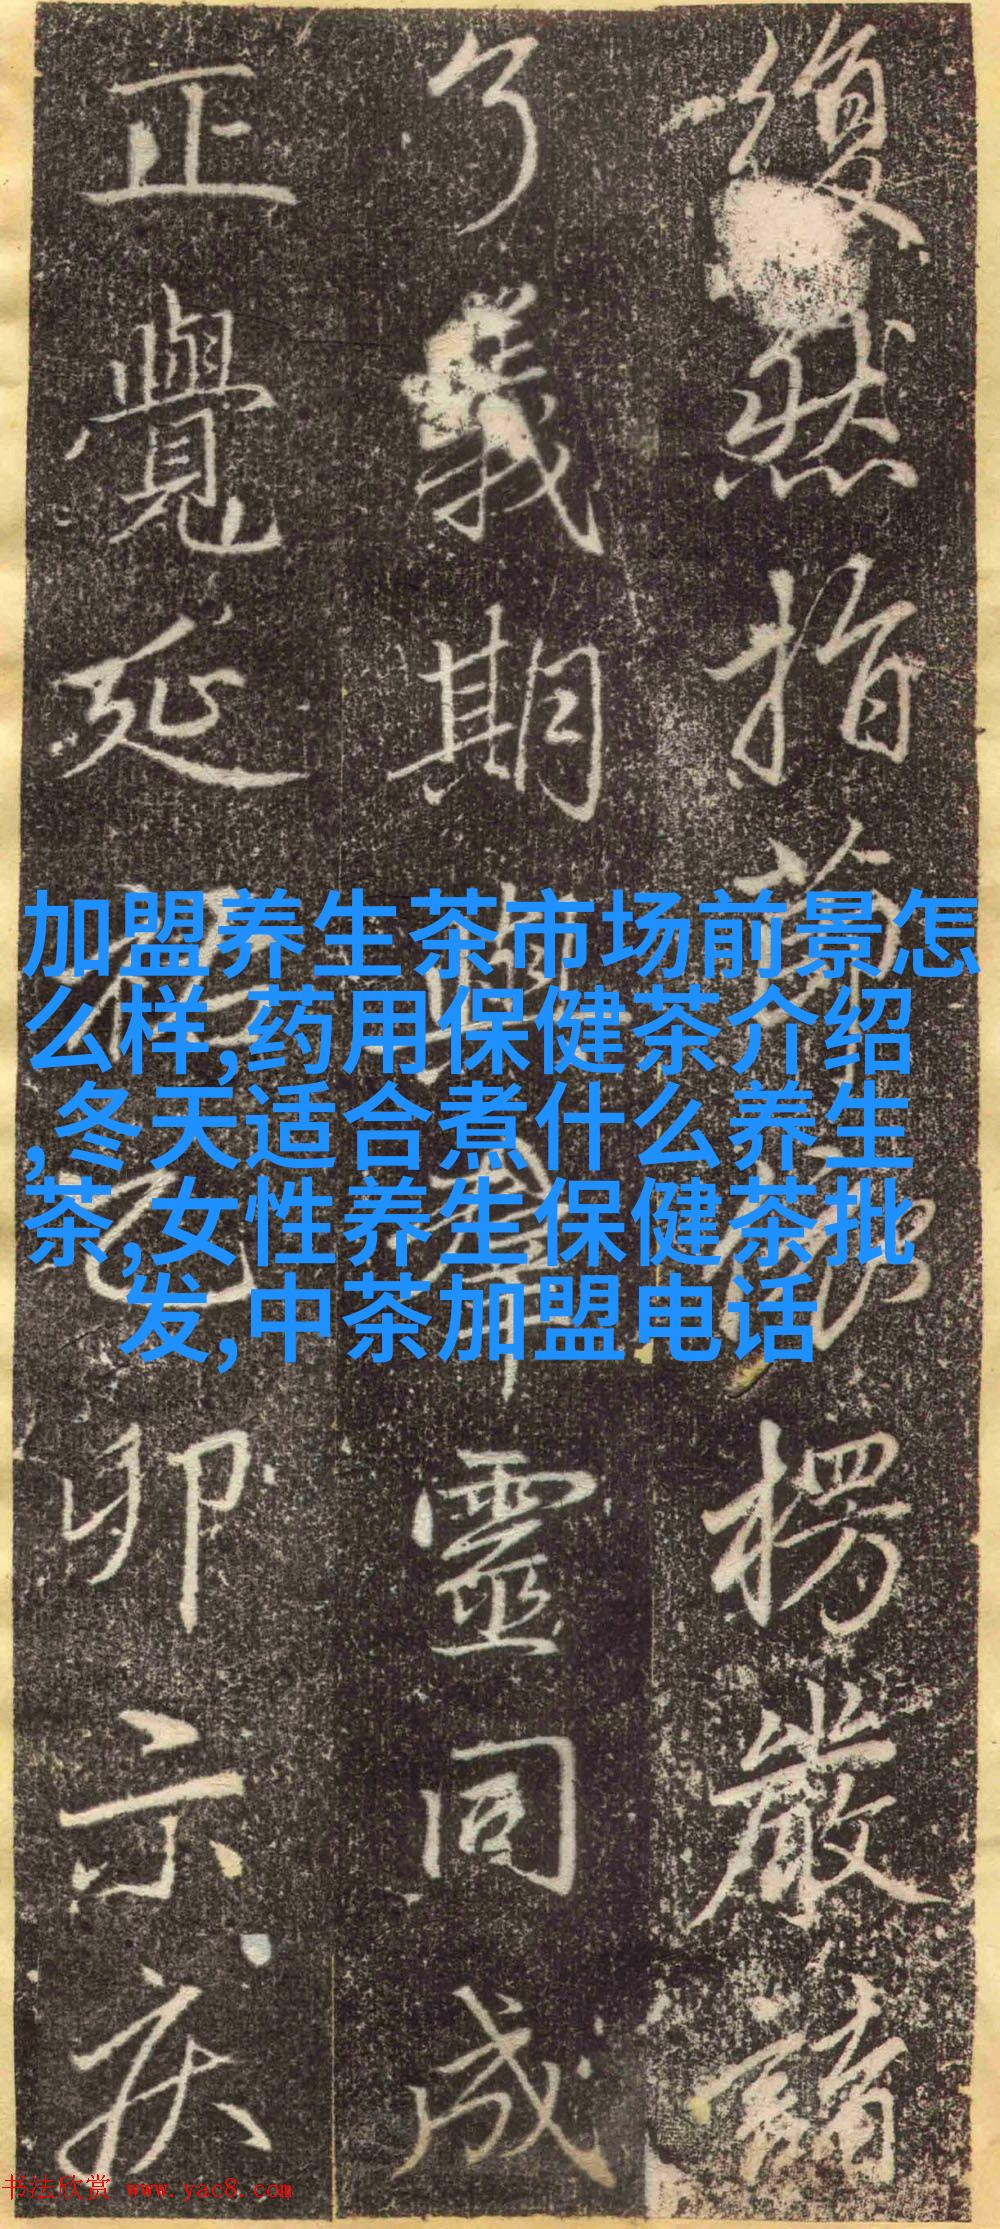 加盟养生茶市场前景怎
么样,药用保健茶介绍
,冬天适合煮什么养生
茶,女性养生保健茶批
发,中茶加盟电话
復然指楞嚴
了義期與羣靈同成
正覺延己卯示
书法欣赏 www.yac8.com